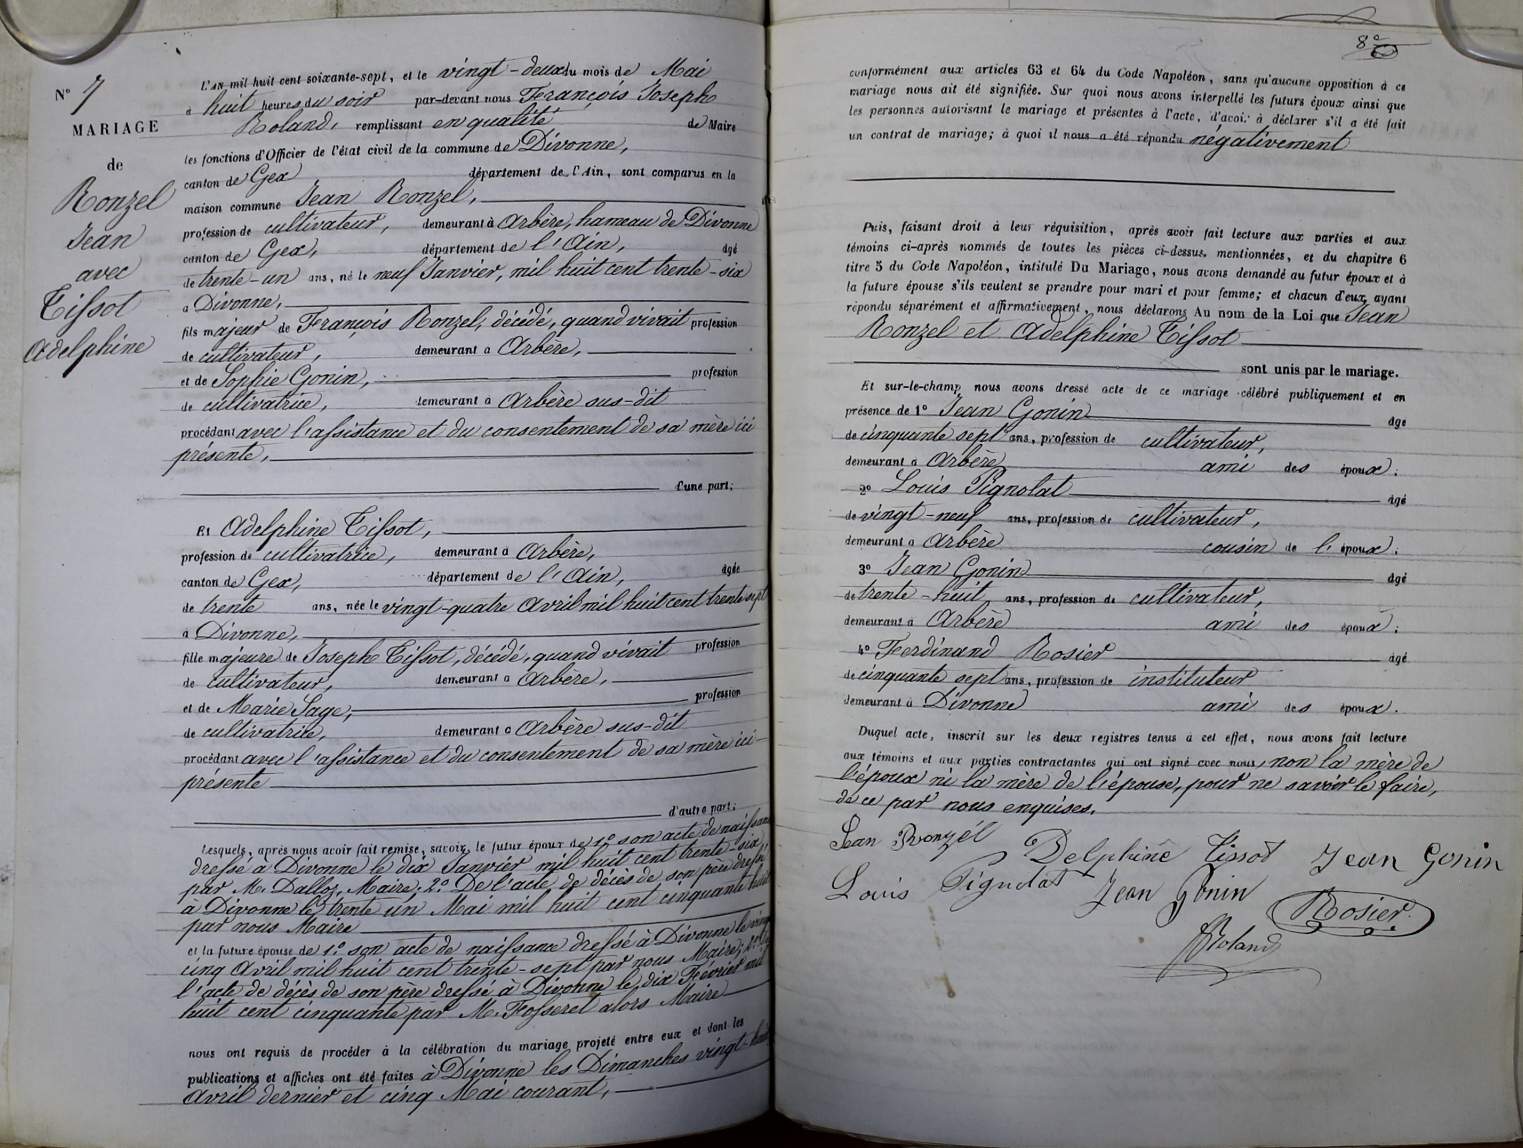 N° 7
MARIAGE
de
Ronzel
Jean
avec
Tissot
Adelphine
L'AN mil huit cent soixante-sept, et le vingt-deux du mois de Mai
à huit heures du soir par-devant nous François Joseph
Roland, remplissant en qualité de Maire
les fonctions d'Officier de l'état civil de la commune de Divonne,
canton de Gex département de l'Ain, sont comparus en la
maison commune Jean Ronzel,
profession de cultivateur, demeurant à Arbère, hameau de Divonne
canton de Gex, département de l'Ain, âgé
de trente-un ans, né le neuf Janvier, mil huit cent trente-six
à Divonne,
fils majeur de François Ronzel, décédé, quand vivait profession
de cultivateur, demeurant à Arbère,
et de Sophie Gonin, profession
de cultivatrice, demeurant à Arbère sus-dit
procédant avec l'assistance et du consentement de sa mère ici
présente,
d'une part;
Et Adelphine Tissot,
profession de cultivatrice, demeurant à Arbère,
canton de Gex, département de l'Ain, âgée
de trente ans, née le vingt-quatre Avril mil huit cent trente sept
à Divonne,
fille majeure de Joseph Tissot, décédé, quand vivait profession
de cultivateur, demeurant à Arbère,
et de Marie Sage, profession
de cultivatrice, demeurant à Arbère sus-dit
procédant avec l'assistance et du consentement de sa mère ici-
présente
d'autre part;
Lesquels, après nous avoir fait remise, savoir, le futur époux de 1° son acte de naissance
dressé à Divonne le dix Janvier mil huit cent trente-six
par M. Dalloz, Maire; 2° De l'acte de décès de son père dressé
à Divonne le trente un Mai mil huit cent cinquante huit
par nous Maire
et la future épouse de 1° son acte de naissance dressé à Divonne le vingt
cinq Avril mil huit cent trente-sept par nous Maire; 2° de
l'acte de décès de son père dressé à Divonne le dix Février mil
huit cent cinquante par M. Fosseret alors Maire
nous ont requis de procéder à la célébration du mariage projeté entre eux et dont les
publications et affiches ont été faites à Divonne les Dimanches vingt-huit
Avril dernier et cinq Mai courant,
8e
conformément aux articles 63 et 64 du Code Napoléon, sans qu'aucune opposition à ce
mariage nous ait été signifiée. Sur quoi nous avons interpellé les futurs époux ainsi que
les personnes autorisant le mariage et présentes à l'acte, d'avoir à déclarer s'il a été fait
un contrat de mariage; à quoi il nous a été répondu négativement
Puis, faisant droit à leur réquisition, après avoir fait lecture aux parties et aux
témoins ci-après nommés de toutes les pièces ci-dessus mentionnées, et du chapitre 6
titre 5 du Code Napoléon, intitulé Du Mariage, nous avons demandé au futur époux et à
la future épouse s'ils veulent se prendre pour mari et pour femme; et chacun d'eux ayant
répondu séparément et affirmativement, nous déclarons Au nom de la Loi que Jean
Ronzel et Adelphine Tissot
sont unis par le mariage.
Et sur-le-champ nous avons dressé acte de ce mariage célébré publiquement et en
présence de 1° Jean Gonin âgé
de cinquante sept ans, profession de cultivateur,
demeurant à Arbère ami des époux;
2° Louis Pignolat âgé
de vingt-neuf ans, profession de cultivateur,
demeurant à Arbère cousin de l'époux;
3° Jean Gonin âgé
de trente-huit ans, profession de cultivateur,
demeurant à Arbère ami des époux;
4° Ferdinand Rosier âgé
de cinquante sept ans, profession de instituteur
demeurant à Divonne ami des époux.
Duquel acte, inscrit sur les deux registres tenus à cet effet, nous avons fait lecture
aux témoins et aux parties contractantes qui ont signé avec nous, non la mère de
l'époux ni la mère de l'épouse, pour ne savoir le faire,
de ce par nous enquises.
Jean Ronzél Delphine Tissot Jean Gonin
Louis Pignolat Jean Gonin Rosier
Roland